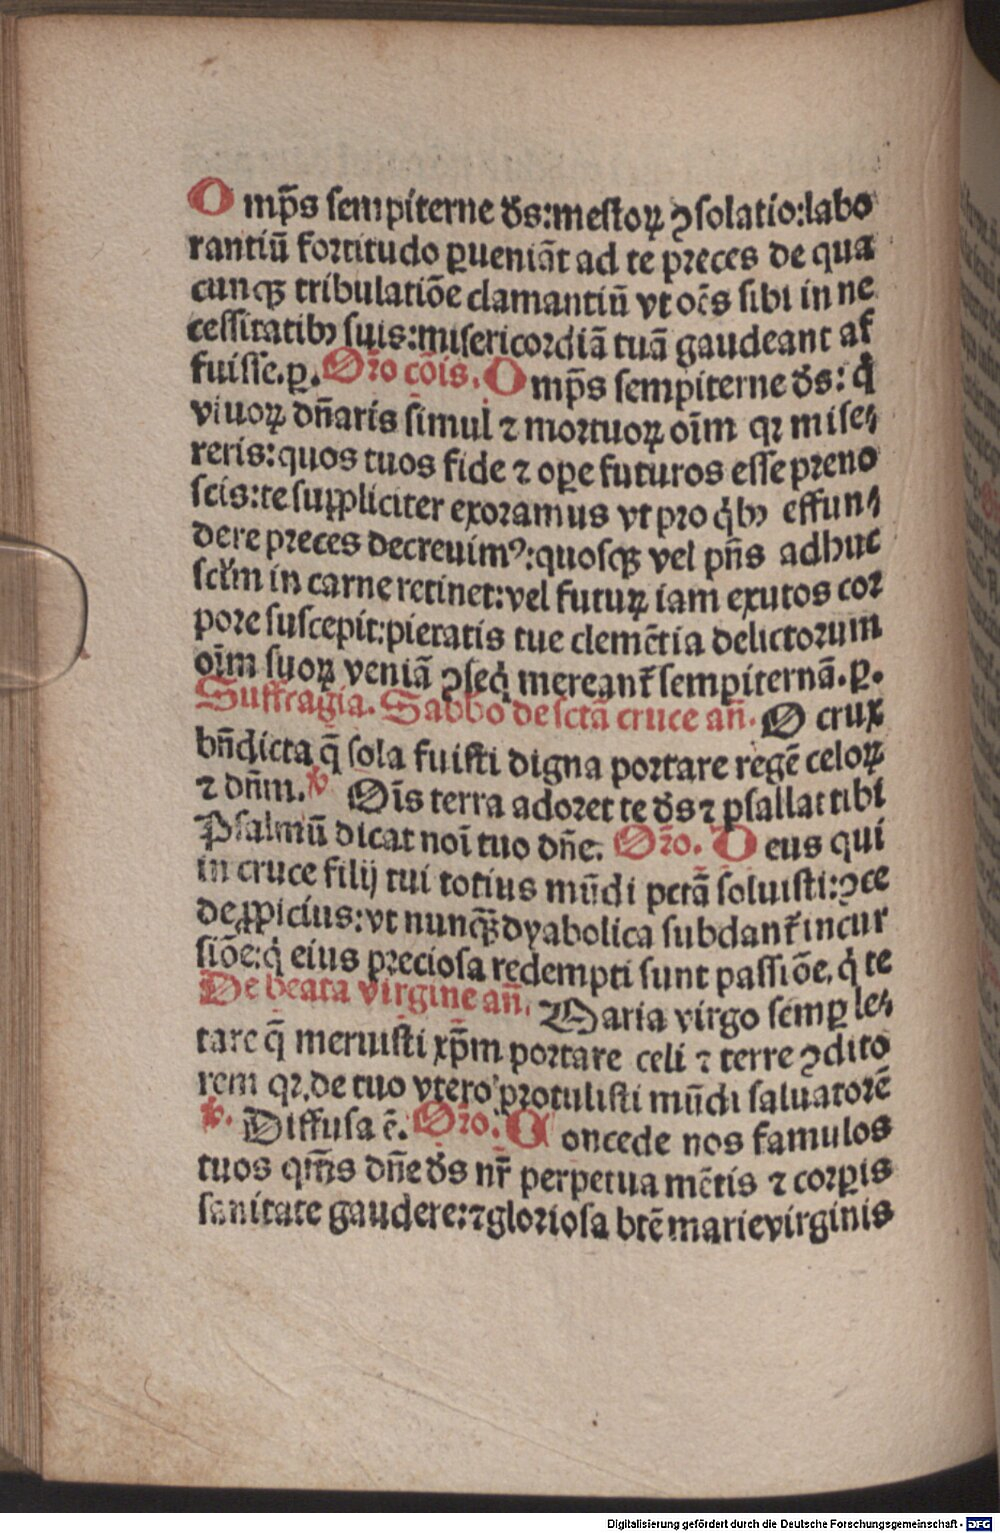 Omp̄s sempiterne ds̄:mestoꝝ ꝯsolatio:labo
rantiū fortitudo ꝑueniāt ad te preces de qua
cunqꝫ tribulatiōe clamantiū vt oēs sibi in ne
cessitatibꝰ suis:misericordiā tuā gaudeant af
fuisse.ꝑ. Oro cōis. Omp̄s sempiterne ds̄: q̇
viuoꝝ dn̄aris simul ⁊ mortuoꝝ oīm qꝛ mise⸗
reris:quos tuos fide ⁊ oꝑe futuros esse preno
scis:te suppliciter exoramus vt pro q̇bꝰ effun⸗
dere preces decreuimꝰ:quosqꝫ vel pn̄s adhuc
sclm̄ in carne retinet:vel futuꝝ iam exutos cor
pore suscepit:pietatis tue clemētia delictorum
oīm suoꝝ veniā ꝯseq̇ mereant᷑ sempiternā.ꝑ.
Suffragia. Sabbo de sctā cruce an̄. O crux
bn̄dicta q̄ sola fuisti digna portare regē celoꝝ
⁊ dn̄m. ꝟ Oīs terra adoret te ds̄ ⁊ psallat tibi
Psalmū dicat noī tuo dn̄e. Oro. Deus qui
in cruce filij tui totius mūdi pctā soluisti:ꝯce
de ꝓpicius:vt nunqꝫ dyabolica subdant᷑ incur
siōe:q̇ eius preciosa redempti sunt passiōe. q̇ te
De beata virgine an̄. Maria virgo semꝑ le⸗
tare q̄ meruisti xp̄m portare celi ⁊ terre ꝯdito
rem qꝛ de tuo vtero protulisti mūdi saluatorē
ꝟ. Diffusa ē. Oro. Concede nos famulos
tuos qm̄s dn̄e ds̄ nr̄ perpetua mētis ⁊ corꝑis
sanitate gaudere:⁊ gloriosa btē marie virginis
Digitalisierung gefördert durch die Deutsche Forschungsgemeinschaft - DFG